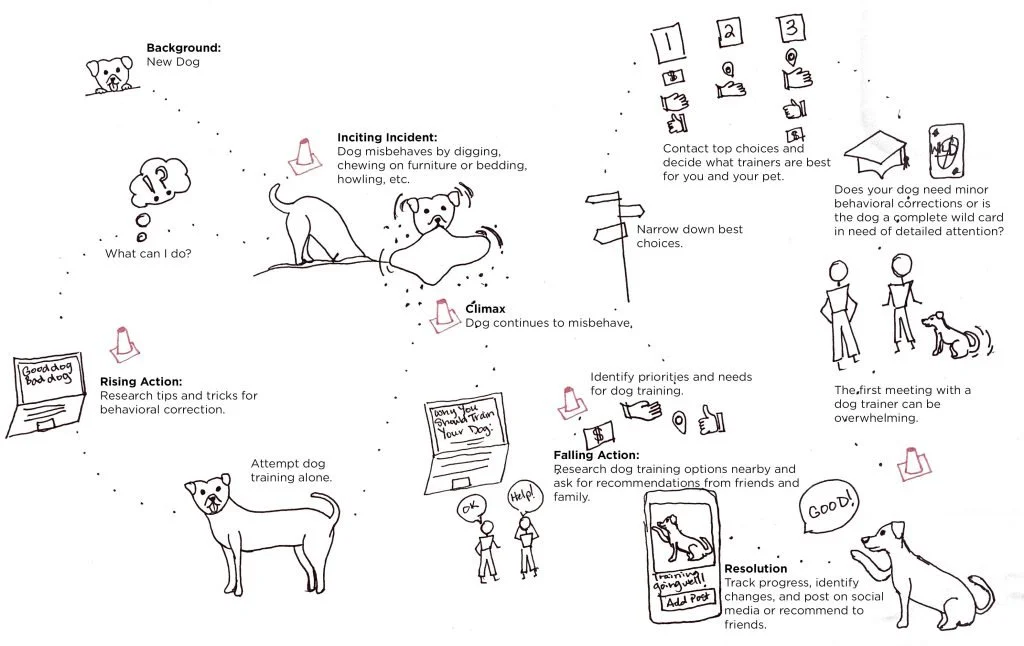 Background:
New Dog
!?
What can I do?
Inciting Incident:
Dog misbehaves by digging,
chewing on furniture or bedding,
howling, etc.
Good dog
Bad dogs
Rising Action:
Research tips and tricks for
behavioral correction.
Attempt dog
training alone.
Climax
Dog continues to misbehave,
Why You
Should Train
Your Dog:
OK
Help!
Identify priorities and needs
for dog training.
$
Falling Action:
Research dog training options nearby and
ask for recommendations from friends and
family.
Narrow down best
choices.
1 2 3
$
$
Contact top choices and
decide what trainers are best
for you and your pet.
WILD
Does your dog need minor
behavioral corrections or is
the dog a complete wild card
in need of detailed attention?
The first meeting with a
dog trainer can be
overwhelming.
GOOD!
Training
going well!
Add Post
Resolution
Track progress, identify
changes, and post on social
media or recommend to
friends.